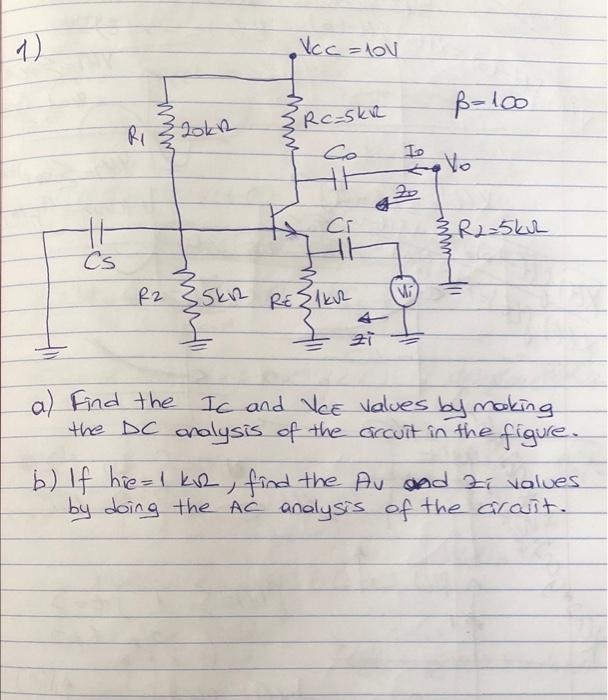 1)
VCC = 10V
β = 100
R1
20kΩ
RC=5kΩ
Co
Io
Vo
Zo
Ci
RL=5kΩ
Cs
R2
5kΩ
RE
1kΩ
Vi
Zi
a) Find the IC and VCE values by making
the DC analysis of the circuit in the figure.
b) If hie = 1 kΩ, find the Av and Zi values
by doing the AC analysis of the circuit.